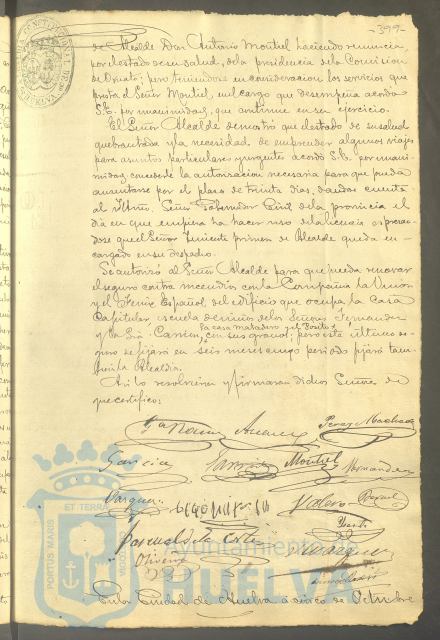 -399-
de Alcalde Don Antonio Montiel haciendo renuncia,
por el estado de su salud, de la presidencia de la Comision
de Ornato; pero teniendose en consideracion los servicios que
presta el Señor Montiel, en el cargo que desempeña acordó
S.E. por unanimidad, que continue en su ejercicio.
El Señor Alcalde demostró que el estado de su salud
quebrantada y la necesidad de emprender algunos viajes
para asuntos particulares y urgentes acordó S.E. por unani-
midad concederle la autorizacion necesaria para que pueda
ausentarse por el plazo de treinta dias, dando cuenta
al Iltmo. Señor Gobernador Civil de la provincia el
dia en que empiera ha hacer uso de la licencia espresan-
dose que el Señor Teniente primero de Alcalde queda en-
cargado en su despacho.
Se autorizó al Señor Alcalde para que pueda renovar
el seguro contra incendios con la Compañia la Union
y el Fenix Español del edificio que ocupa la Casa
Capitular escuela de niños de los Señores Fernandez
y la Sra. la casa matadero y el Posito
con sus granos; pero este ultimo se-
guro se fijará en seis meses cuyo periodo fijará tam-
bien la Alcaldia.
Asi lo resolvieron y firmaron dichos Señores de
que certifico:
Perez Machado
Garcia
Garcia
Montiel
Hernandez
Vazquez
Valero
Pascual de la Corte
Oliveira
PORTUS MARIS
ET TERRÆ
Ayuntamiento de
HUELVA
En la Ciudad de Huelva a cinco de Octubre